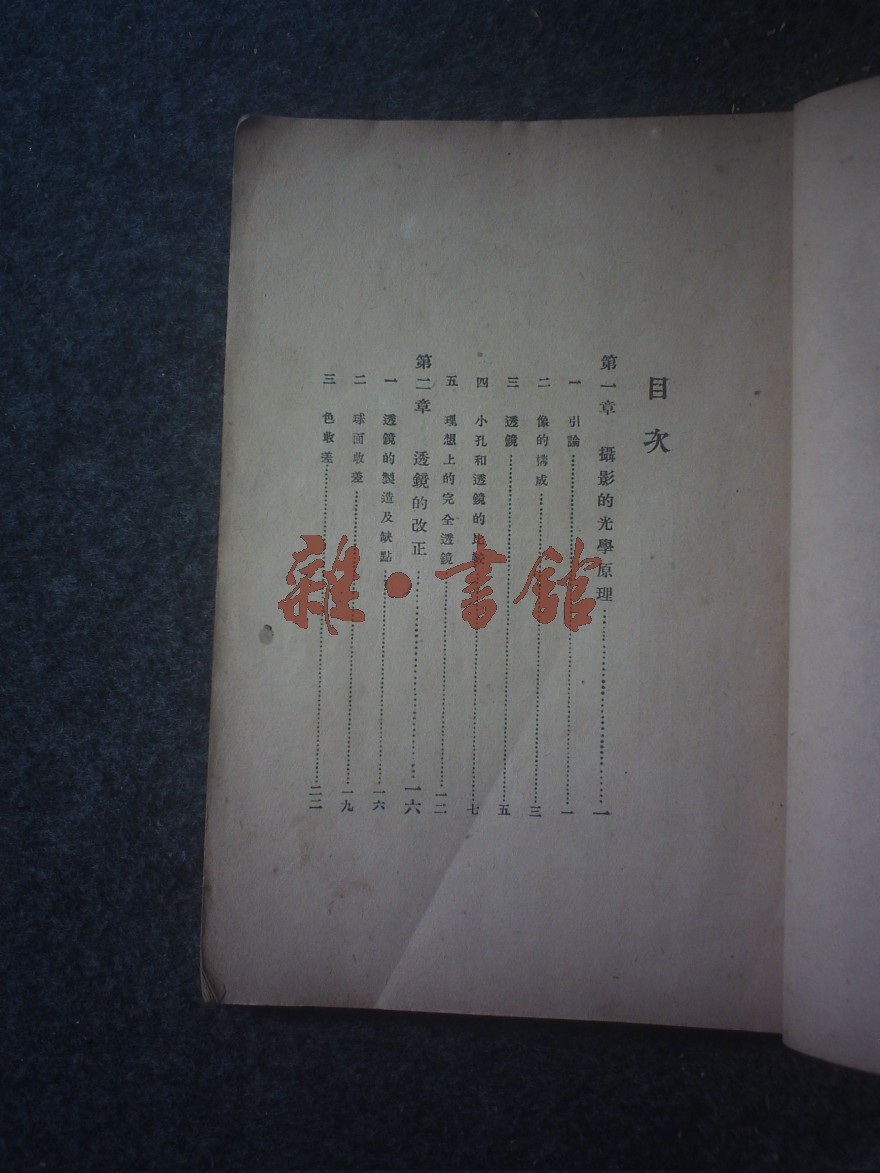 目次
第一章 攝影的光學原理……一
一 引論……一
二 像的構成……三
三 透鏡……五
四 小孔和透鏡的比較……七
五 理想上的完全透鏡……一二
第二章 透鏡的改正……一六
一 透鏡的製造及缺點……一六
二 球面收差……一九
三 色收差……二二
雜·書館